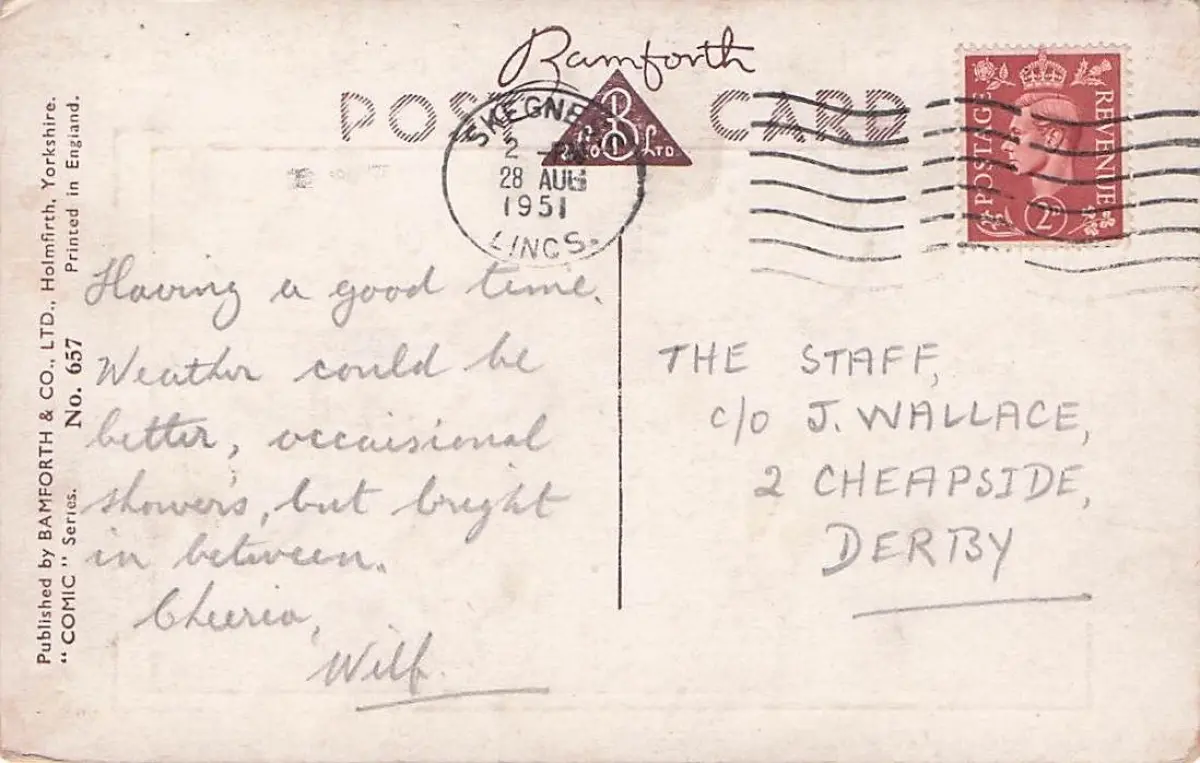 Bamforth
POST CARD
B
Co LTD
SKEGNE
2
28 AUG
1951
LINCS.
POSTAGE
REVENUE
2D
Published by BAMFORTH & CO., LTD., Holmfirth, Yorkshire.
"COMIC" Series. No. 657 Printed in England.
Having a good time.
Weather could be
better, occaisional
showers, but bright
in between.
Cheerio,
Wilf.
THE STAFF,
c/o J. WALLACE,
2 CHEAPSIDE,
DERBY